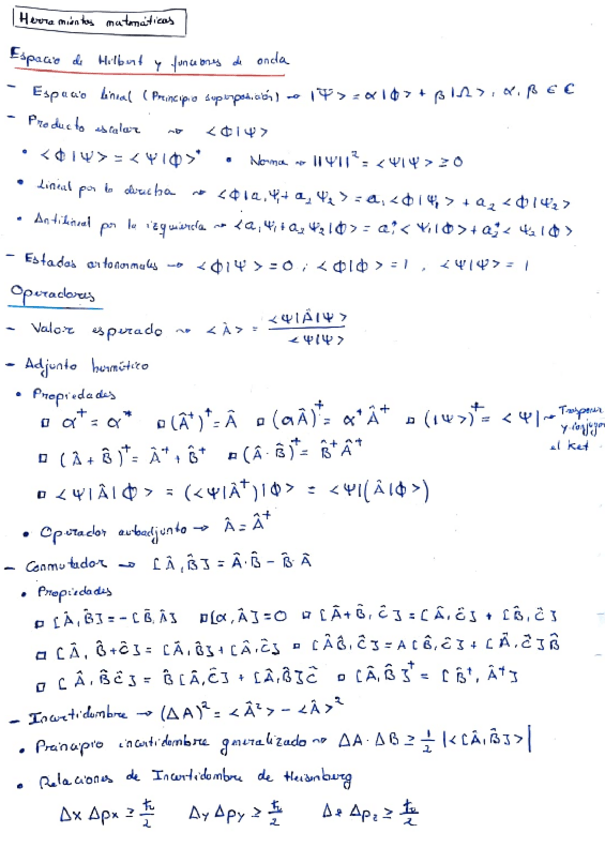 Herramientas matemáticas
Espacio de Hilbert y funciones de onda
- Espacio lineal (Principio superposición) → |Ψ> = α|Φ> + β|Ω>, α, β ∈ ℂ
- Producto escalar → <Φ|Ψ>
• <Φ|Ψ> = <Ψ|Φ>* • Norma → ||Ψ||² = <Ψ|Ψ> ≥ 0
• Lineal por la derecha → <Φ|a₁Ψ₁ + a₂Ψ₂> = a₁<Φ|Ψ₁> + a₂<Φ|Ψ₂>
• Antilineal por la izquierda → <a₁Ψ₁ + a₂Ψ₂|Φ> = a₁*<Ψ₁|Φ> + a₂*<Ψ₂|Φ>
- Estados ortonormales → <Φ|Ψ> = 0 ; <Φ|Φ> = 1 , <Ψ|Ψ> = 1
Operadores
- Valor esperado → <Â> = <Ψ|Â|Ψ> / <Ψ|Ψ>
- Adjunto hermítico
• Propiedades
▫ α⁺ = α* ▫ (Â⁺)⁺ = Â ▫ (αÂ)⁺ = α*Â⁺ ▫ (|Ψ>)⁺ = <Ψ| → Trasponer y conjugar el ket
▫ (Â + B̂)⁺ = Â⁺ + B̂⁺ ▫ (Â · B̂)⁺ = B̂⁺Â⁺
▫ <Ψ|Â|Φ> = (<Ψ|Â⁺)|Φ> = <Ψ|(Â|Φ>)
• Operador autoadjunto → Â = Â⁺
- Conmutador → [Â, B̂] = Â·B̂ - B̂·Â
• Propiedades
▫ [Â, B̂] = -[B̂, Â] ▫ [α, Â] = 0 ▫ [Â + B̂, Ĉ] = [Â, Ĉ] + [B̂, Ĉ]
▫ [Â, B̂ + Ĉ] = [Â, B̂] + [Â, Ĉ] ▫ [ÂB̂, Ĉ] = A[B̂, Ĉ] + [Â, Ĉ]B̂
▫ [Â, B̂Ĉ] = B̂[Â, Ĉ] + [Â, B̂]Ĉ ▫ [Â, B̂]⁺ = [B̂⁺, Â⁺]
- Incertidumbre → (ΔA)² = <Â²> - <Â>²
• Principio incertidumbre generalizado → ΔA · ΔB ≥ 1/2 |<[Â, B̂]>|
• Relaciones de Incertidumbre de Heisenburg
Δx Δpx ≥ ħ/2 Δy Δpy ≥ ħ/2 Δz Δpz ≥ ħ/2